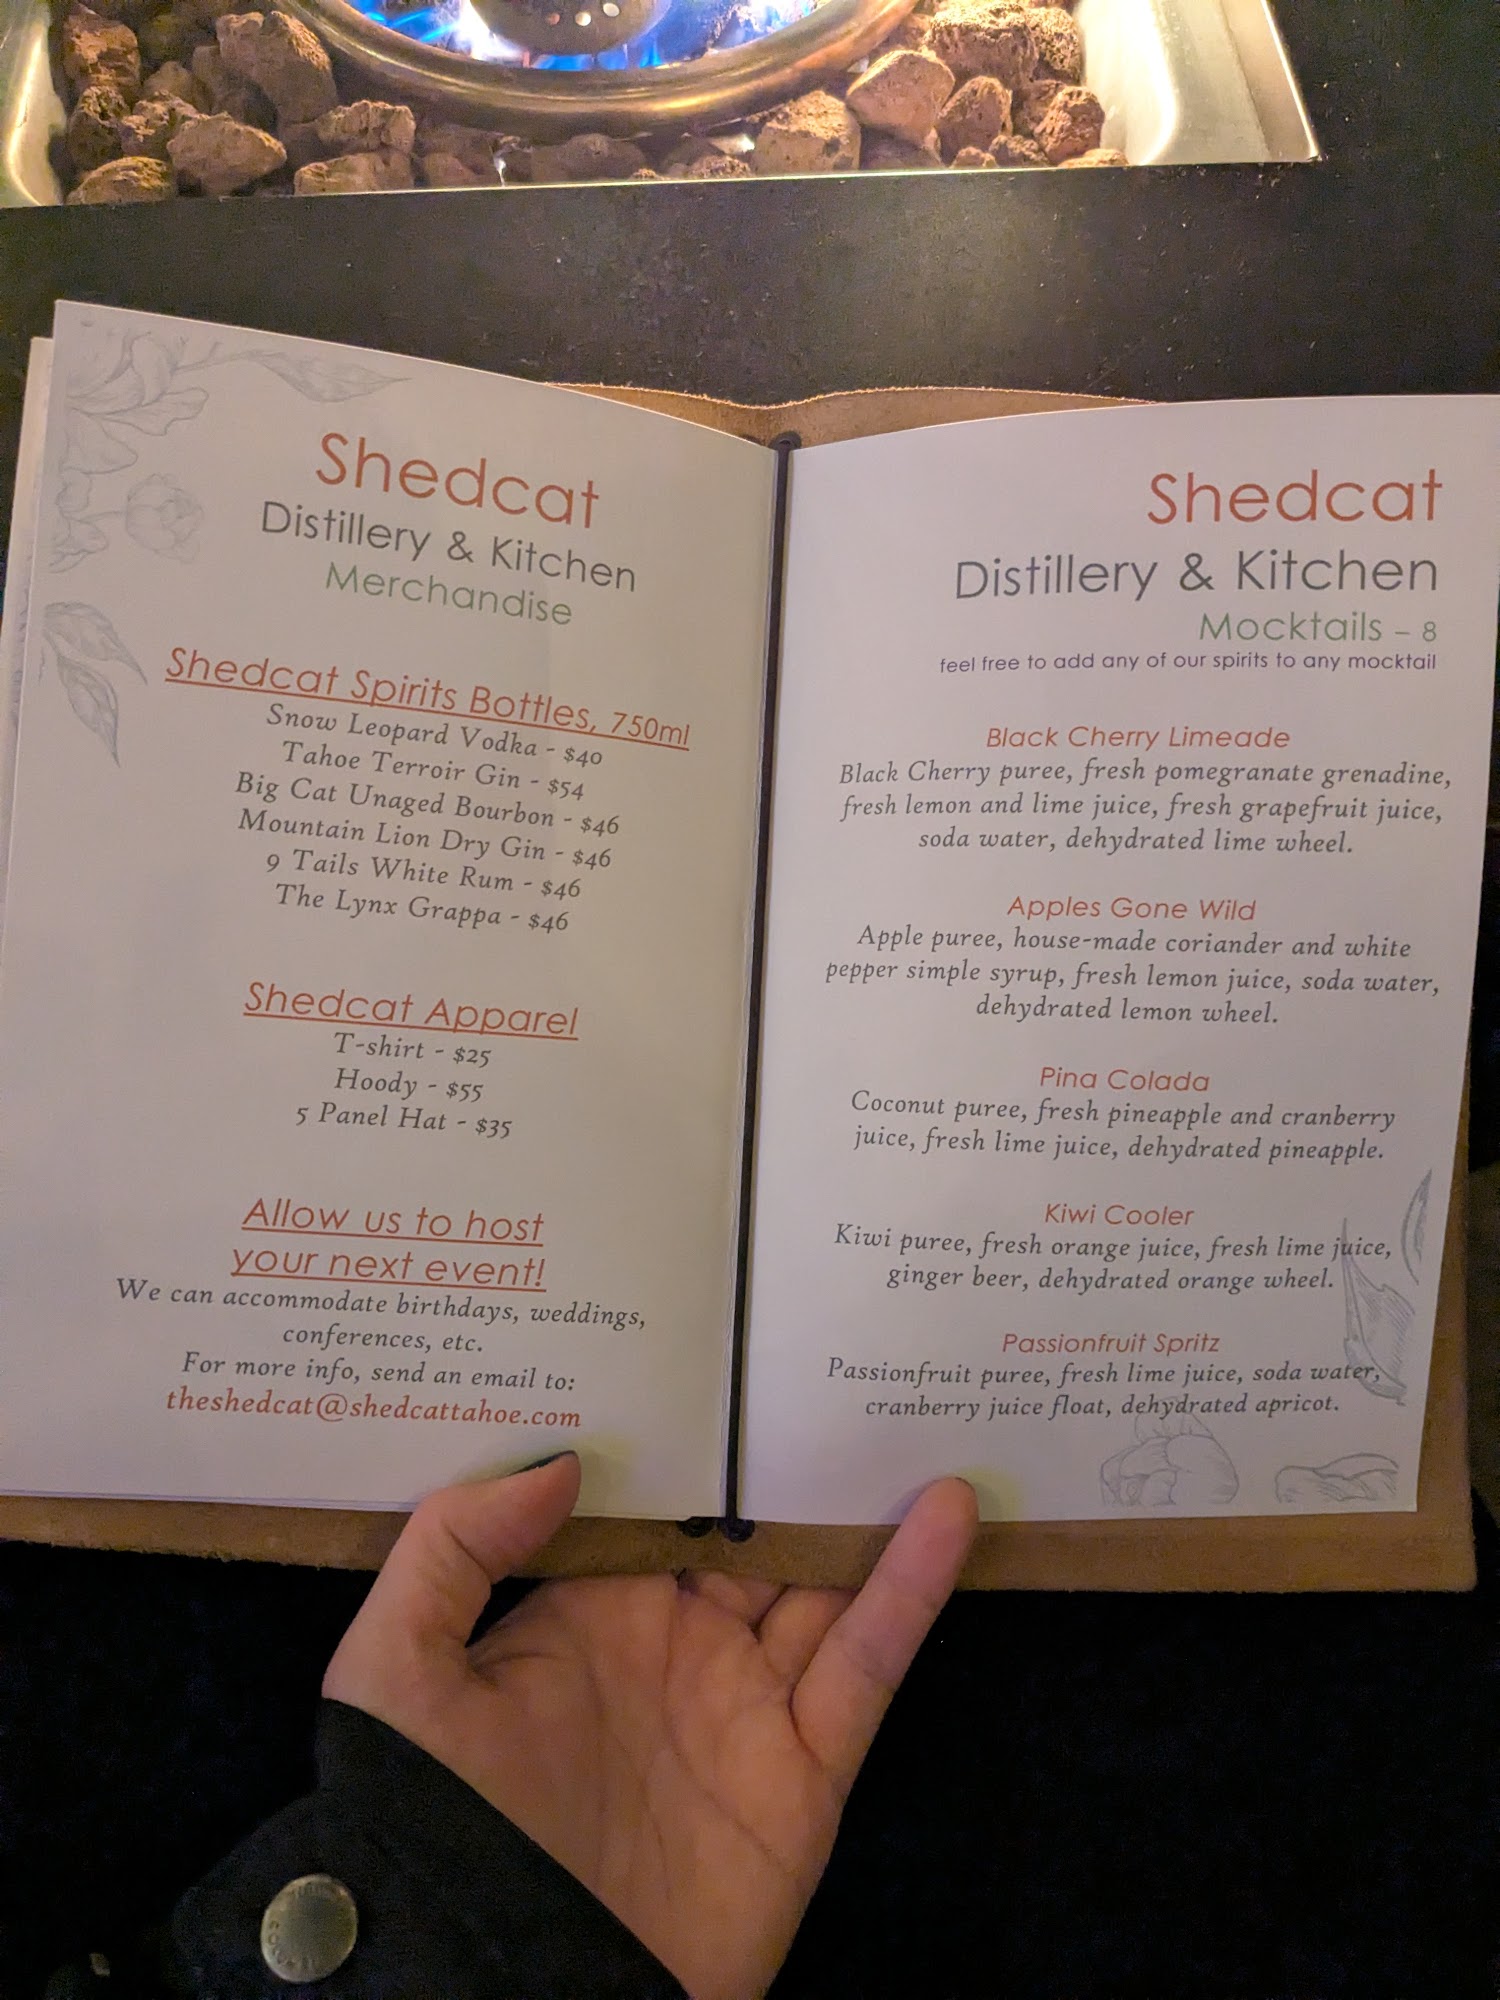 Shedcat
Distillery & Kitchen
Merchandise
Shedcat Spirits Bottles, 750ml
Snow Leopard Vodka - $40
Tahoe Terroir Gin - $54
Big Cat Unaged Bourbon - $46
Mountain Lion Dry Gin - $46
9 Tails White Rum - $46
The Lynx Grappa - $46
Shedcat Apparel
T-shirt - $25
Hoody - $55
5 Panel Hat - $35
Allow us to host
your next event!
We can accommodate birthdays, weddings,
conferences, etc.
For more info, send an email to:
theshedcat@shedcattahoe.com
Shedcat
Distillery & Kitchen
Mocktails – 8
feel free to add any of our spirits to any mocktail
Black Cherry Limeade
Black Cherry puree, fresh pomegranate grenadine,
fresh lemon and lime juice, fresh grapefruit juice,
soda water, dehydrated lime wheel.
Apples Gone Wild
Apple puree, house-made coriander and white
pepper simple syrup, fresh lemon juice, soda water,
dehydrated lemon wheel.
Pina Colada
Coconut puree, fresh pineapple and cranberry
juice, fresh lime juice, dehydrated pineapple.
Kiwi Cooler
Kiwi puree, fresh orange juice, fresh lime juice,
ginger beer, dehydrated orange wheel.
Passionfruit Spritz
Passionfruit puree, fresh lime juice, soda water,
cranberry juice float, dehydrated apricot.